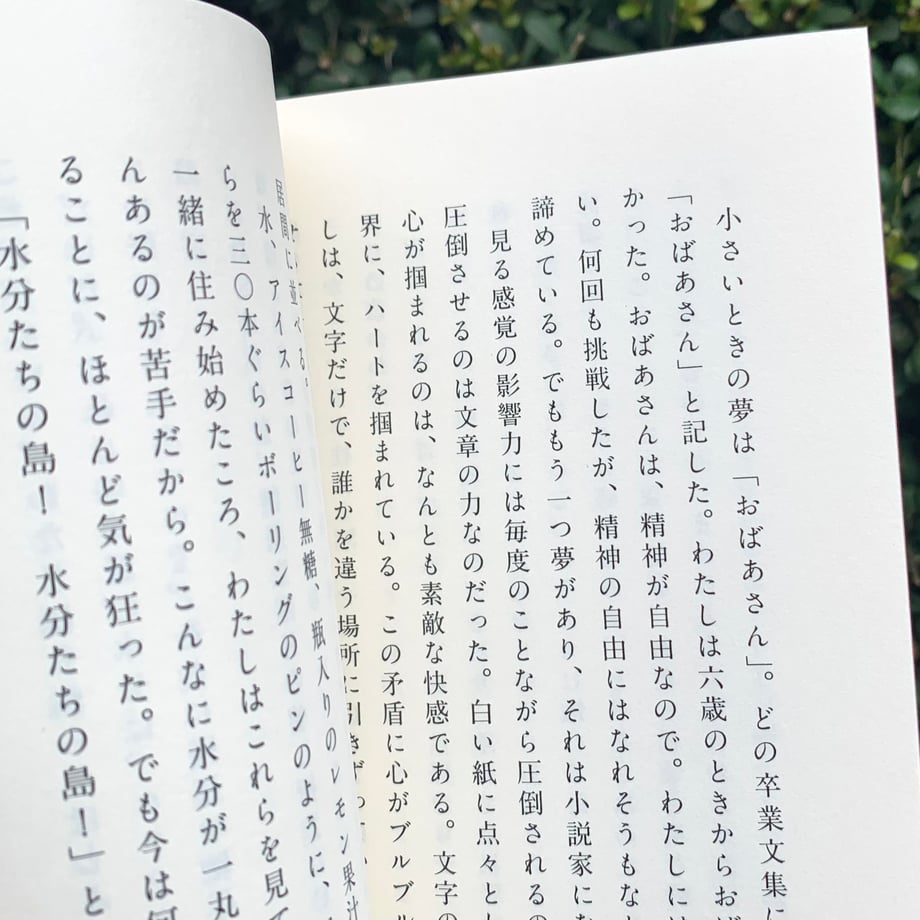 小さいときの夢は「おばあさん」。どの卒業文集に
「おばあさん」と記した。わたしは六歳のときからおば
かった。おばあさんは、精神が自由なので。わたしには
い。何回も挑戦したが、精神の自由にはなれそうもな
諦めている。でももう一つ夢があり、それは小説家にな
見る感覚の影響力には毎度のことながら圧倒されるの
圧倒させるのは文章の力なのだった。白い紙に点々と
心が掴まれるのは、なんとも素敵な快感である。文字の
界に、ハートを掴まれている。この矛盾に心がブルブル
しは、文字だけで、誰かを違う場所に引きず
居間に並べる。
水、アイスコーヒー無糖、瓶入りのレモン果汁
らを三〇本ぐらいボーリングのピンのように、
一緒に住み始めたころ、わたしはこれらを見て
んあるのが苦手だから。こんなに水分が一丸
ることに、ほとんど気が狂った。でも今は何
「水分たちの島！ 水分たちの島！」と